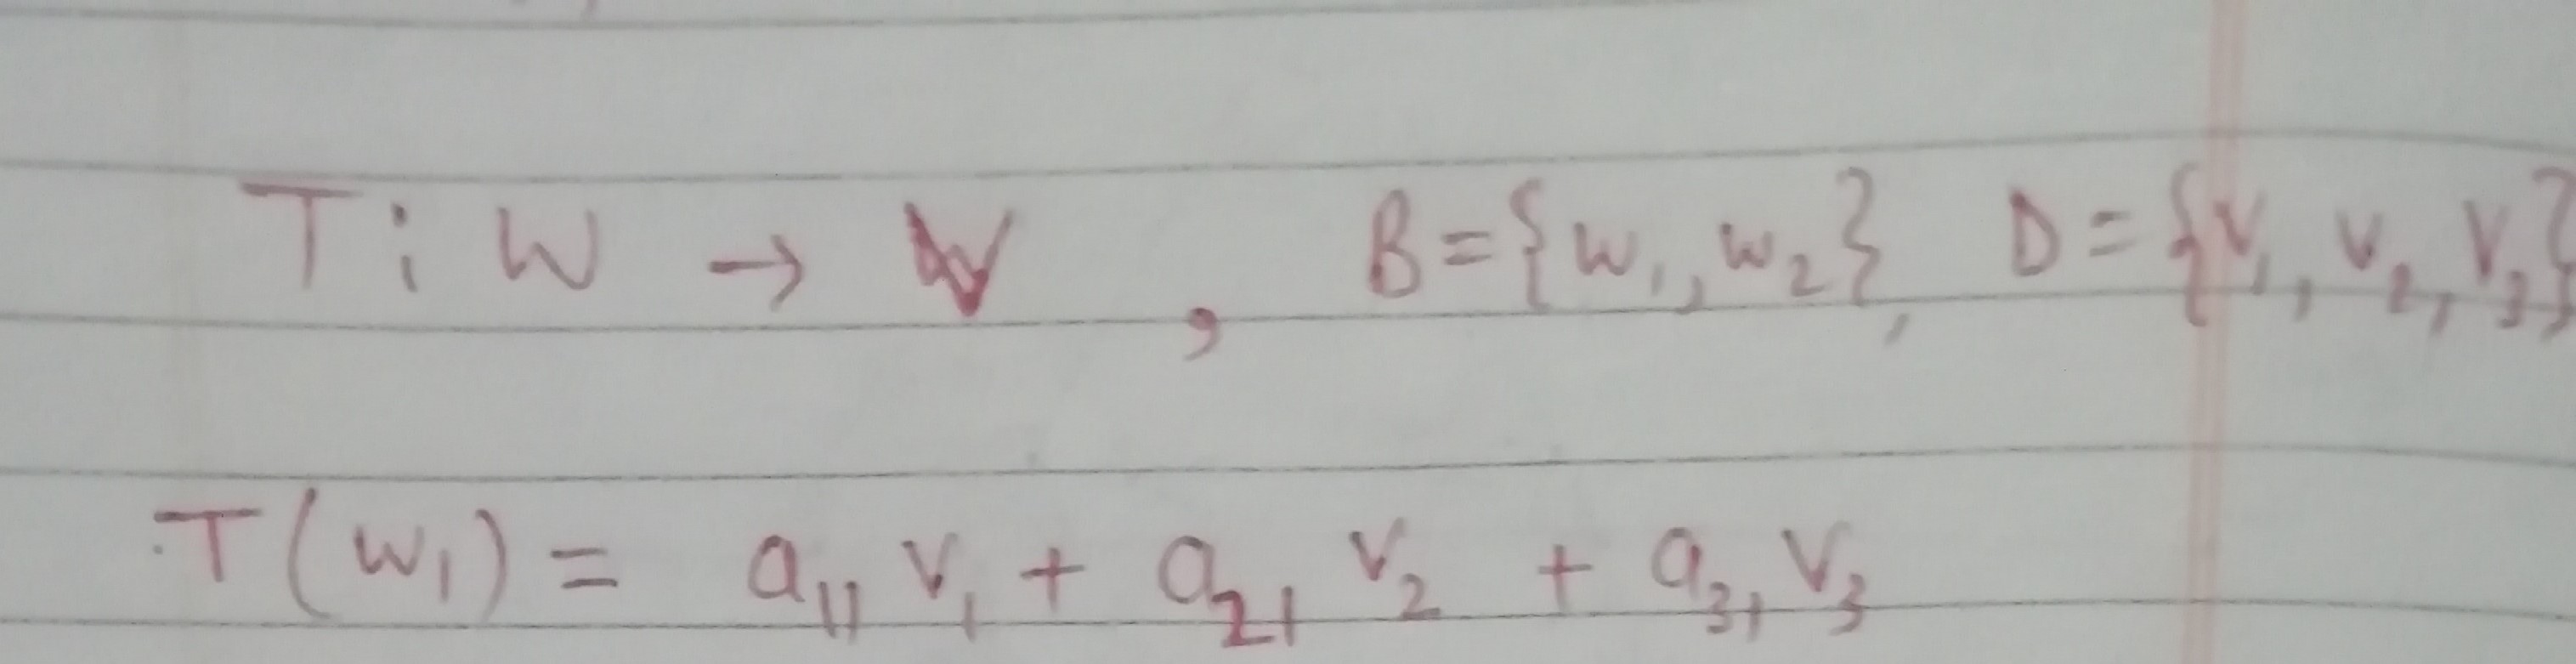 T : W → V , B = {w₁, w₂}, D = {v₁, v₂, v₃}
T(w₁) = a₁₁ v₁ + a₂₁ v₂ + a₃₁ v₃